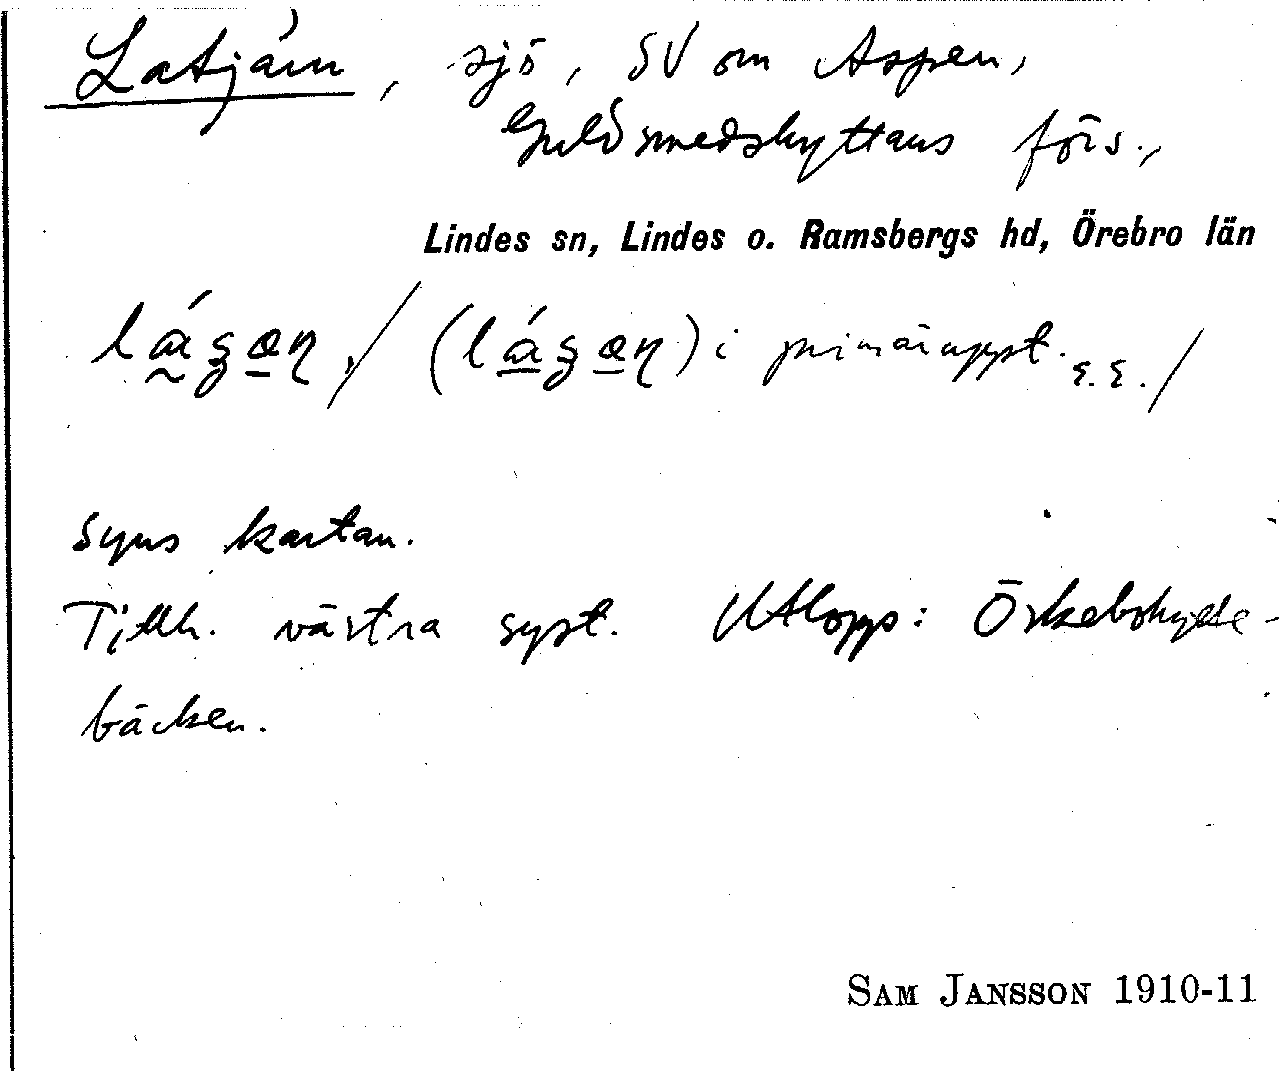 Latjärn, sjö, SV om Aspen,
Guldsmedshyttans förs.,
Lindes sn, Lindes o. Ramsbergs hd, Örebro län
i primäruppt. S.E./
Syns kartan.
Tillh. västra syst. Utlopp: Öskebohytte-
bäcken.
SAM JANSSON 1910-11